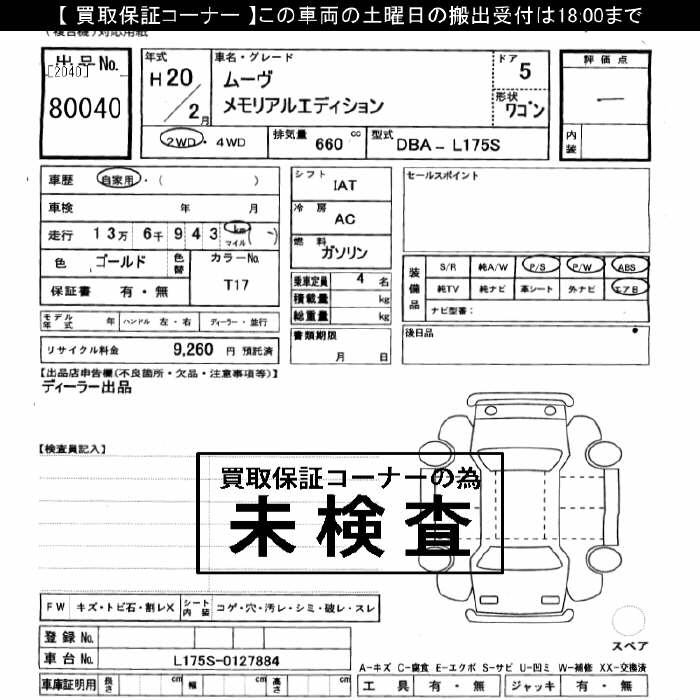 【 買取保証コーナー 】この車両の土曜日の搬出受付は18:00まで
(複合機)対応用紙
出品No.
[2040]
80040
年式
H20/2月
車名・グレード
ムーヴ
メモリアルエディション
ドア
5
形状
ワゴン
評価点
―
内装
2WD・4WD
排気量 660 cc
型式 DBA-L175S
車歴 自家用・( )
車検 年 月
走行 13万 6千 943 km マイル ( )
色 ゴールド 色替 カラーNo.
保証書 有・無 T17
シフト IAT
冷房 AC
燃料 ガソリン
乗車定員 4 名
積載量 kg
総重量 kg
書類期限
月 日
セールスポイント
装備品
S/R 純A/W P/S P/W ABS
純TV 純ナビ 革シート 外ナビ エアB
ナビ型番:
後日品
モデル年式 年 ハンドル 左・右 ディーラー・並行
リサイクル料金 9,260 円 預託済
【出品店申告欄(不良箇所・欠品・注意事項等)】
ディーラー出品
【検査員記入】
買取保証コーナーの為
未検査
FW キズ・トビ石・割レX シート内装 コゲ・穴・汚レ・シミ・破レ・スレ
登録No.
車台No. L175S-0127884
車庫証明用 長さ cm 幅 cm 高さ cm
スペア
A-キズ C-腐食 E-エクボ S-サビ U-凹ミ W-補修 XX-交換済
工具 有・無 ジャッキ 有・無